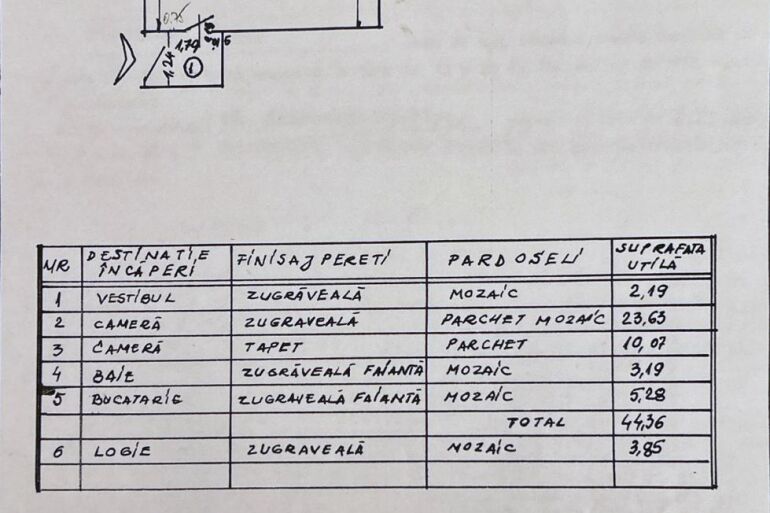 0.75
1,79
1,24
1
NR DESTINAȚIE ÎNCĂPERI FINISAJ PEREȚI PARDOSELI SUPRAFAȚA UTILĂ
1 VESTIBUL ZUGRĂVEALĂ MOZAIC 2,19
2 CAMERĂ ZUGRAVEALĂ PARCHET MOZAIC 23,63
3 CAMERĂ TAPET PARCHET 10,07
4 BAIE ZUGRĂVEALĂ FAIANȚĂ MOZAIC 3,19
5 BUCATARIE ZUGRAVEALĂ FAIANȚĂ MOZAIC 5,28
TOTAL 44,36
6 LOGIE ZUGRAVEALĂ MOZAIC 3,85